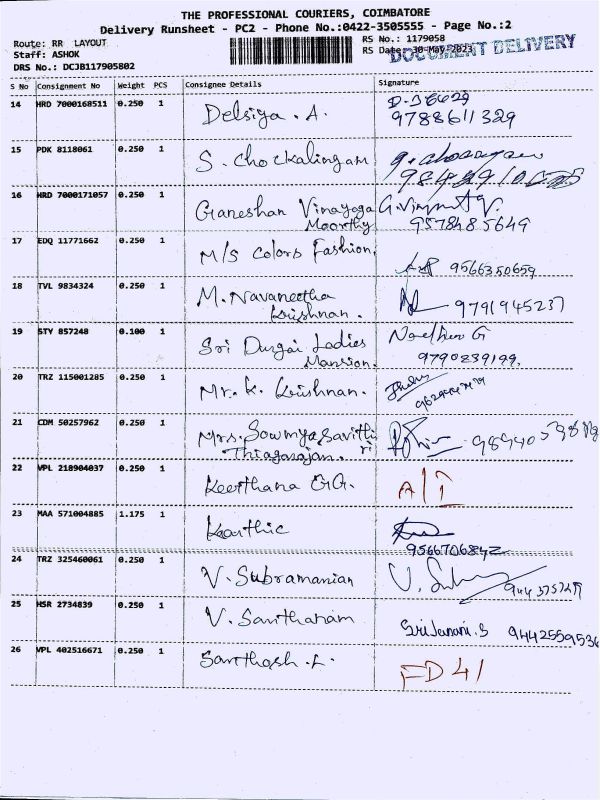 THE PROFESSIONAL COURIERS, COIMBATORE
Delivery Runsheet - PC2 - Phone No.:0422-3505555 - Page No.:2
Route: RR LAYOUT
RS No.: 1179058
Staff: ASHOK
RS Date: 30-May-2023
DOCUMENT DELIVERY
DRS No.: DCJB117905802
S No Consignment No Weight PCS Consignee Details Signature
14 HRD 7000168511 0.250 1 Delsiya . A.
9788611329
15 PDK 8118061 0.250 1 S. Chockalingam
16 HRD 7000171057 0.250 1 Ganeshan Vinayaga
Moorthy
9578485649
17 EDQ 11771662 0.250 1 M/S Colors Fashion
9566350659
18 TVL 9834324 0.250 1 M. Navaneetha
Krishnan.
9791945237
19 STY 857248 0.100 1 Sri Durgai Ladies
Mansion.
9790239199.
20 TRZ 115001285 0.250 1 Mr. K. Krishnan.
21 CDM 50257962 0.250 1 Mrs. Sowmyasavithi
ri
Thiagarajan.
22 VPL 218904037 0.250 1 Keerthana GG.
A/I
23 MAA 571004885 1.175 1 Karthic
9566706842
24 TRZ 325460061 0.250 1 V. Subramanian
25 HSR 2734839 0.250 1 V. Santhanam
SriJanani.S 9442559536
26 VPL 402516671 0.250 1 Santhosh .L.
FD41